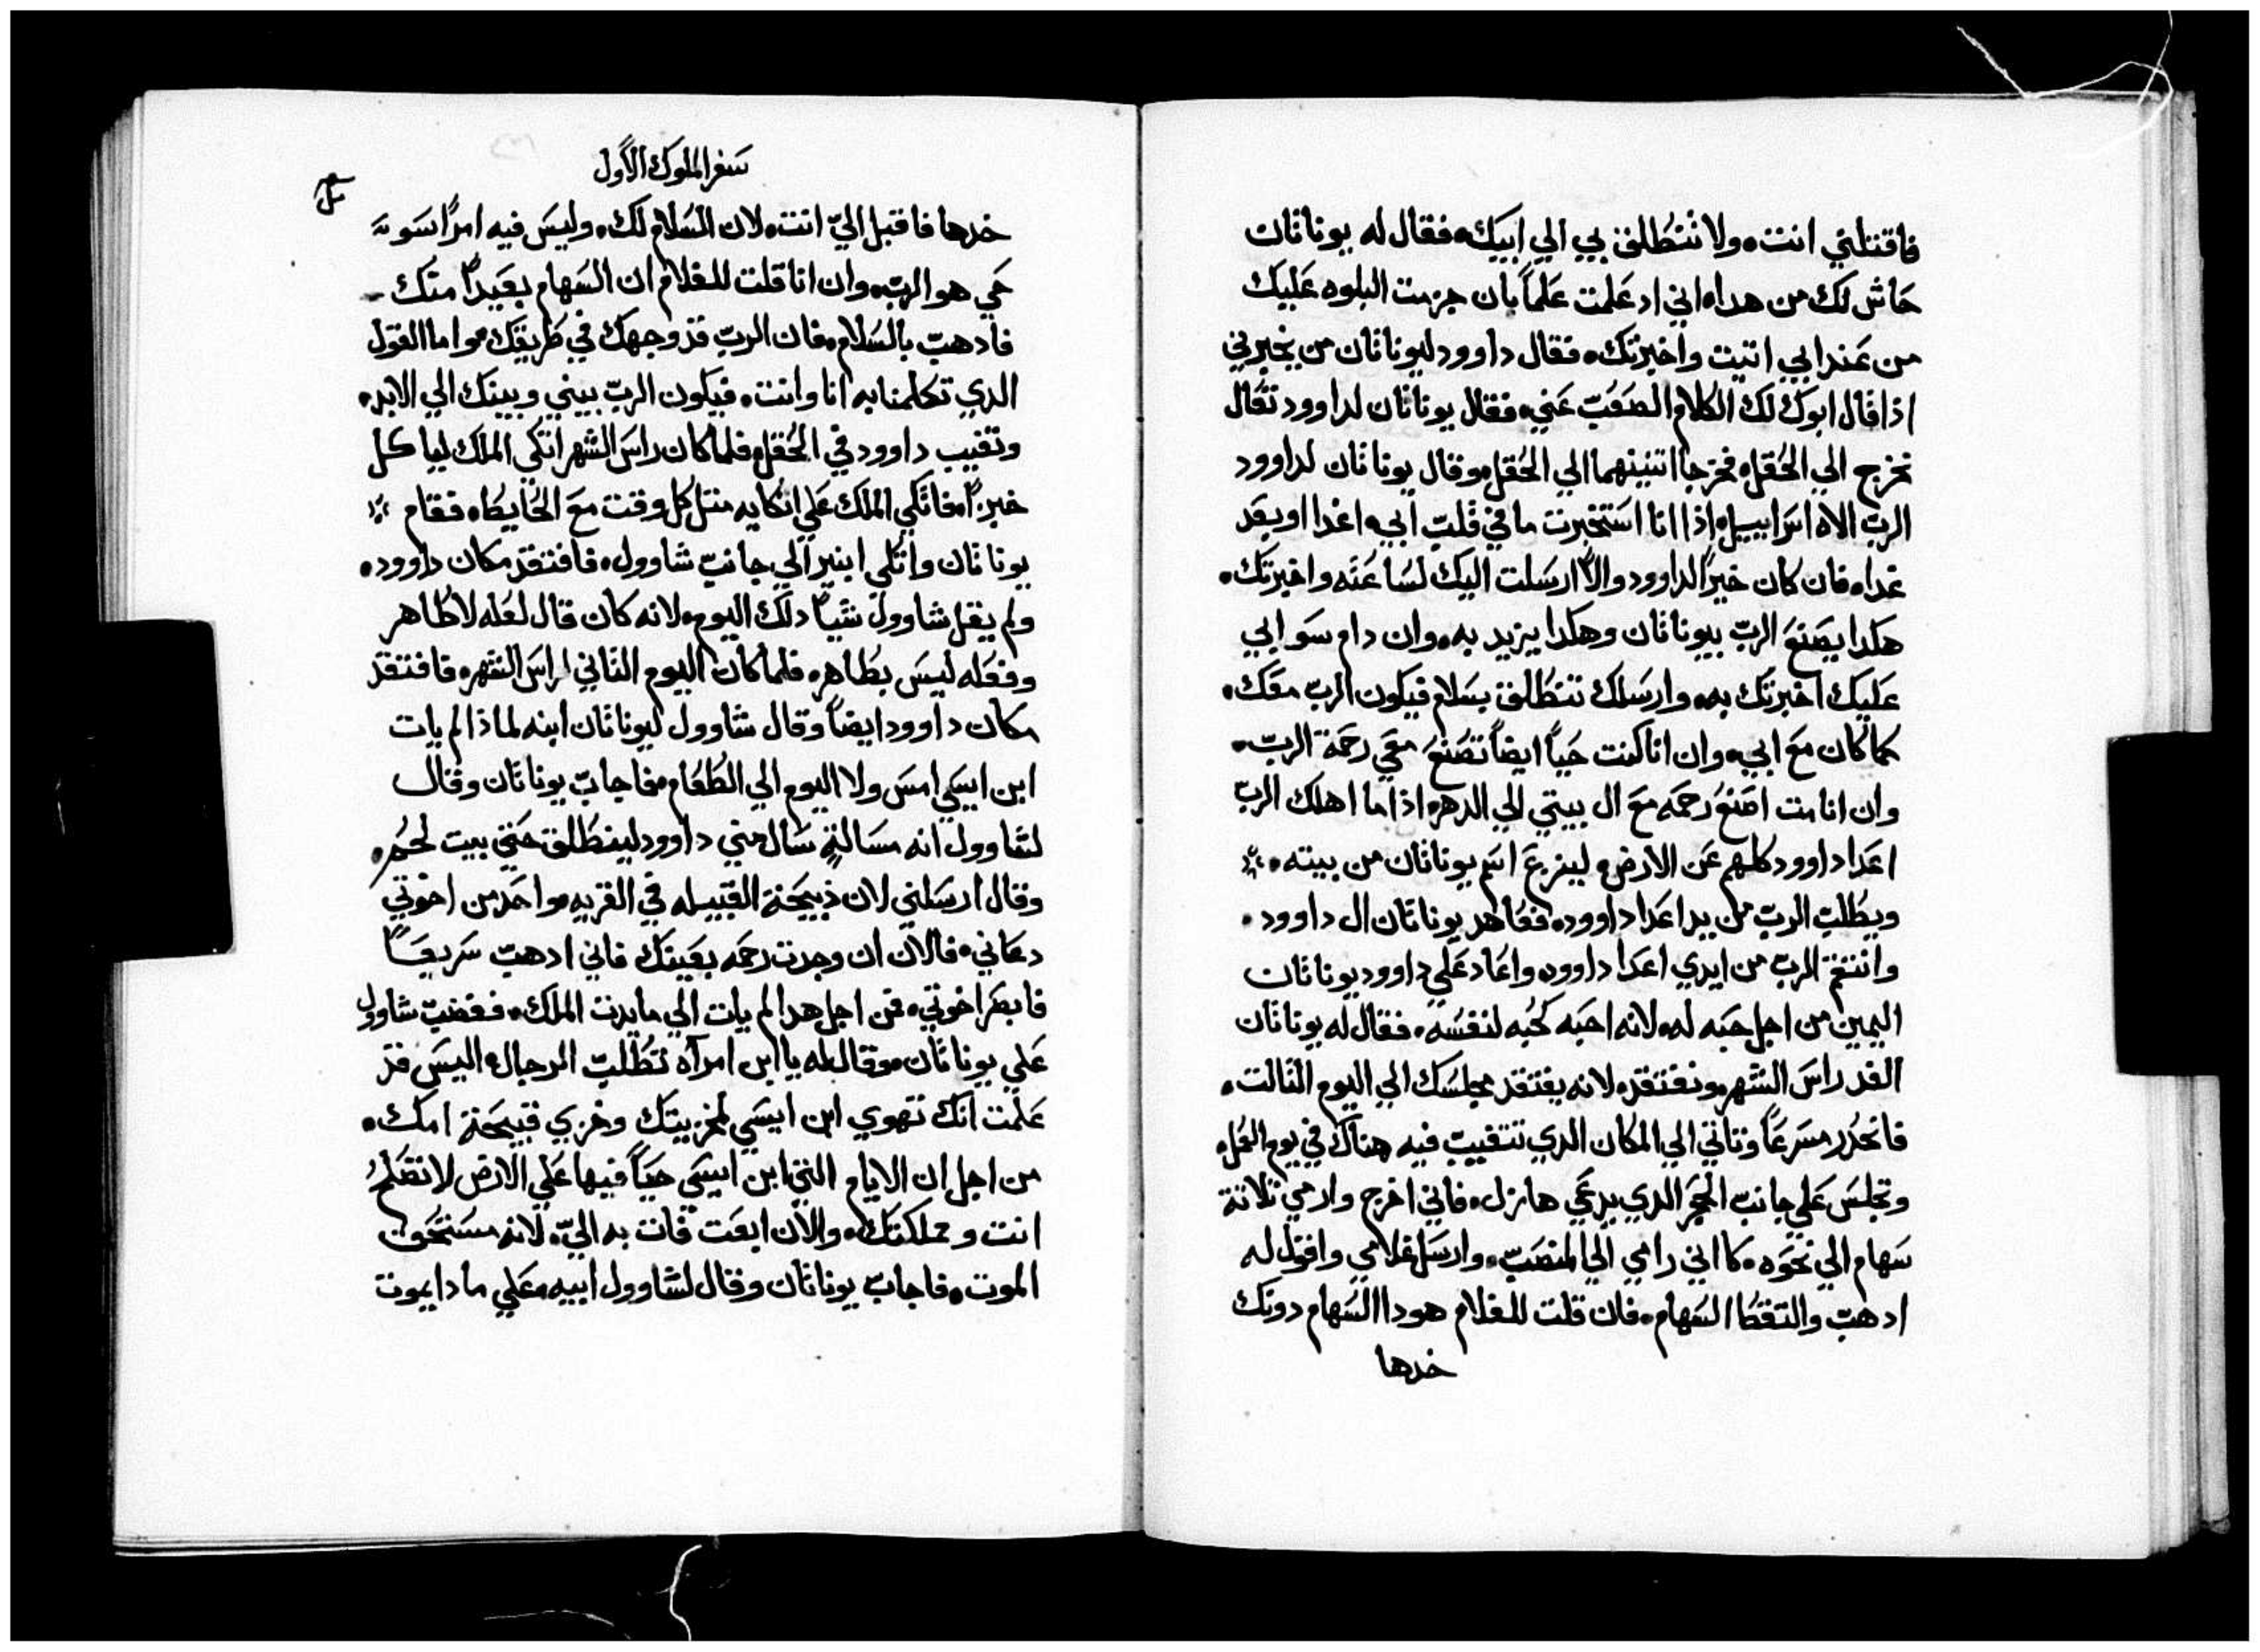 فاقتلني انت، ولا تنطلق بي الي ابيك، فقال له يوناتان
حاش لك من هدا، اني اد علمت علماً بان جزمت البلوه عليك
من عند ابي اتيت واخبرتك، فقال داوود ليوناتان من يخبرني
اذا قال ابوك لك الكلام الصعب عني، فقال يوناتان لداوود تعال
نخرج الي الحقل، فخرجا اتنينهما الي الحقل، وقال يوناتان لداوود
الرب الاه اسراييل، اذا انا استخبرت ما في قلب ابي، اغدا او بعد
غدا، فان كان خيراً لداوود والا ارسلت اليك لساعته واخبرتك،
هكدا يصنع الرب بيوناتان وهكدا يزيد به، وان دام سوابي
عليك اخبرتك به، وارسلك تنطلق بسلام فيكون الرب معك،
كما كان مع ابي، وان انا كنت حياً ايضاً تصنع معي رحمة الرب،
وان انا مت اصنع رحمه مع ال بيتي الي الدهر، اذا ما اهلك الرب
اعدا داوود كلهم عن الارض، لينزع اسم يوناتان من بيته،
ويطلب الرب من يد اعدا داوود، فعاهد يوناتان ال داوود،
وانتقم الرب من ايدي اعدا داوود، واعاد علي داوود يوناتان
اليمين من اجل حبه له، لانه احبه كحبه لنفسه، فقال له يوناتان
الغد راس الشهر، وتفتقد، لانه يفتقد مجلسك الي اليوم التالت،
فانحدر مسرعاً وتاتي الي المكان الدي تتغيب فيه هناك في يوم العمل،
وتجلس علي جانب الحجر الدي يدعي هازل، فاني اخرج وارمي تلاتة
سهام الي نحوه، كااني رامي الي المنصب، وارسل غلامي واقول له
ادهب والتقط السهام، فان قلت للغلام هودا السهام دونك
خدها
سفر الملوك الاول
خدها فاقبل الي انت، لان السلام لك، وليس فيه امراً سوء
حي هو الرب، وان انا قلت للغلام ان السهام بعيداً منك
فادهب بالسلام، فان الرب قد وجهك في طريقك، واما القول
الدي تكلمنا به انا وانت، فيكون الرب بيني وبينك الي الابد،
وتغيب داوود في الحقل، فلما كان راس الشهر اتكي الملك لياكل
خبزاً، فاتكي الملك علي اتكايه متل كل وقت مع الحايط، فقام
يوناتان واتكي ابنير الي جانب شاوول، فافتقد مكان داوود،
ولم يقل شاوول شياً دلك اليوم، لانه كان قال لعله لا طاهر
وفعله ليس بطاهر، فلما كان اليوم التاني لراس الشهر، فافتقد
مكان داوود ايضاً وقال شاوول ليوناتان ابنه لماذا لم يات
ابن ايسي امس ولا اليوم الي الطعام، فاجاب يوناتان وقال
لشاوول انه مسالة سال مني داوود لينطلق حتي بيت لحم،
وقال ارسلني لان ذبيحة القبيله في القريه، واحد من اخوتي
دعاني، فالان ان وجدت رحمه بعينك فاني ادهب سريعاً
فابصر اخوتي، فمن اجل هدا لم يات الي مايدت الملك، فغضب شاوول
علي يوناتان، وقال له يا ابن امراه تطلب الرجال، اليس قد
علمت انك تهوي ابن ايسي لخزيتك وخزي قبيحة امك،
من اجل ان الايام التي ابن ايسي حياً فيها علي الارض لا تصلح
انت و مملكتك، والان ابعت فات به الي، لانه مستحق
الموت، فاجاب يوناتان وقال لشاوول ابيه، علي مادا يموت